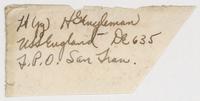 H Engleman
USS England DE 635
F.P.O. San Fran.